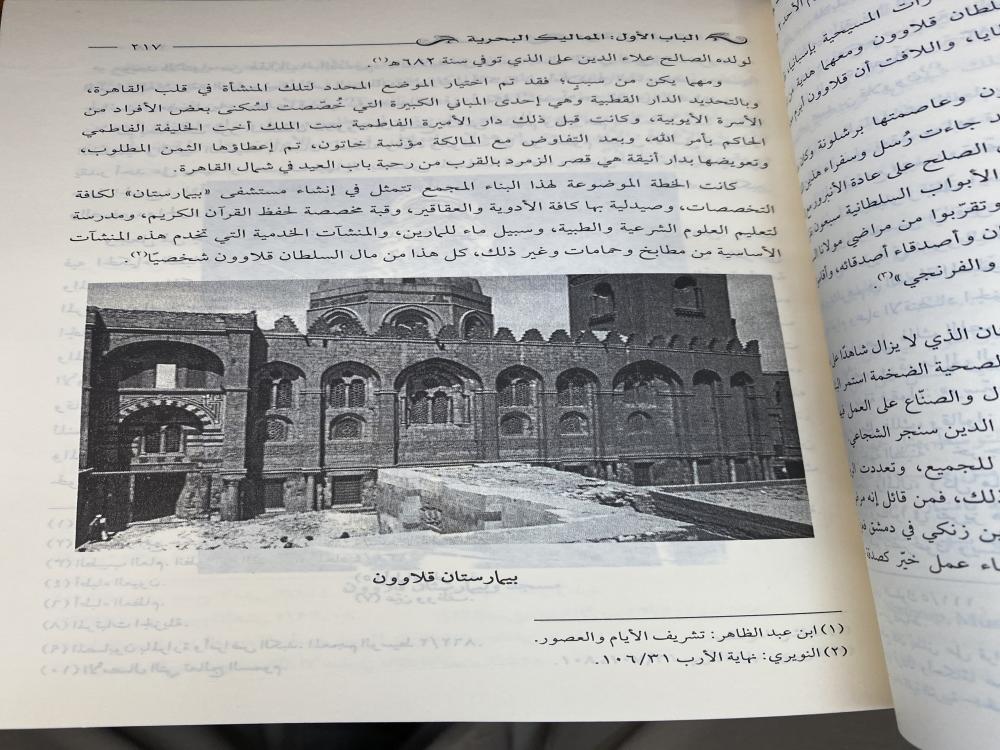 الباب الأول: المماليك البحرية
٢١٧
لولده الصالح علاء الدين على الذي توفي سنة ٦٨٢هـ(١).
ومهما يكن من سببٍ؛ فقد تم اختيار الموضع المحدد لتلك المنشأة في قلب القاهرة،
وبالتحديد الدار القطبية وهي إحدى المباني الكبيرة التي خُصصت لسُكنى بعض الأفراد من
الأسرة الأيوبية، وكانت قبل ذلك دار الأميرة الفاطمية ست الملك أخت الخليفة الفاطمي
الحاكم بأمر الله، وبعد التفاوض مع المالكة مؤنسة خاتون، تم إعطاؤها الثمن المطلوب،
وتعويضها بدار أنيقة هي قصر الزمرد بالقرب من رحبة باب العيد في شمال القاهرة.
كانت الخطة الموضوعة لهذا البناء المجمع تتمثل في إنشاء مستشفى «بيمارستان» لكافة
التخصصات، وصيدلية بها كافة الأدوية والعقاقير، وقبة مخصصة لحفظ القرآن الكريم، ومدرسة
لتعليم العلوم الشرعية والطبية، وسبيل ماء للمارين، والمنشآت الخدمية التي تخدم هذه المنشآت
الأساسية من مطابخ وحمامات وغير ذلك، كل هذا من مال السلطان قلاوون شخصيًّا(٢).
بيمارستان قلاوون
(١) ابن عبد الظاهر: تشريف الأيام والعصور.
(٢) النويري: نهاية الأرب ١٠٦/٣١.
المسيحية بإسبانيا
سلطان قلاوون ومعهما هدية
واللافت أن قلاوون أبرم
وعاصمتها برشلونة
جاءت رُسل وسفراء
الصلح على عادة الأنبرور
الأبواب السلطانية سبعون
وتقرّبوا من مراضي مولانا
وأصدقاء أصدقائه،
والفرنجي»(٣).
الذي لا يزال شاهدًا على
الصحية الضخمة استمر
والصنّاع على العمل
الدين سنجر الشجاعي
للجميع، وتعددت
ذلك، فمن قائل إنه
بن زنكي في دمشق
عمل خيّر كصدقة